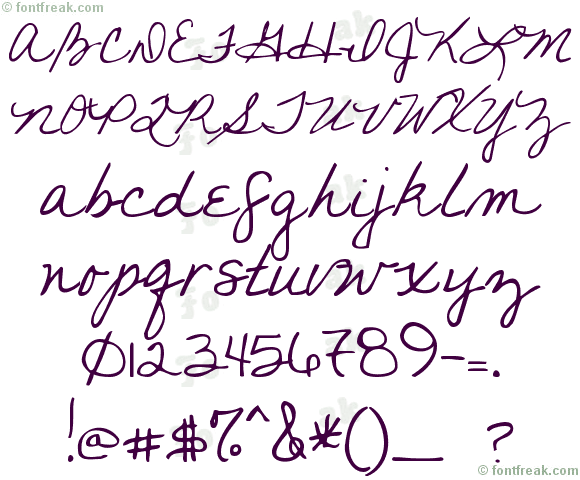 © fontfreak.com
ABCDEFGHIJKLM
NOPQRSTUVWXYZ
abcdefghijklm
nopqrstuvwxyz
0123456789-=.
!@#$%^&*()_ ?
© fontfreak.com